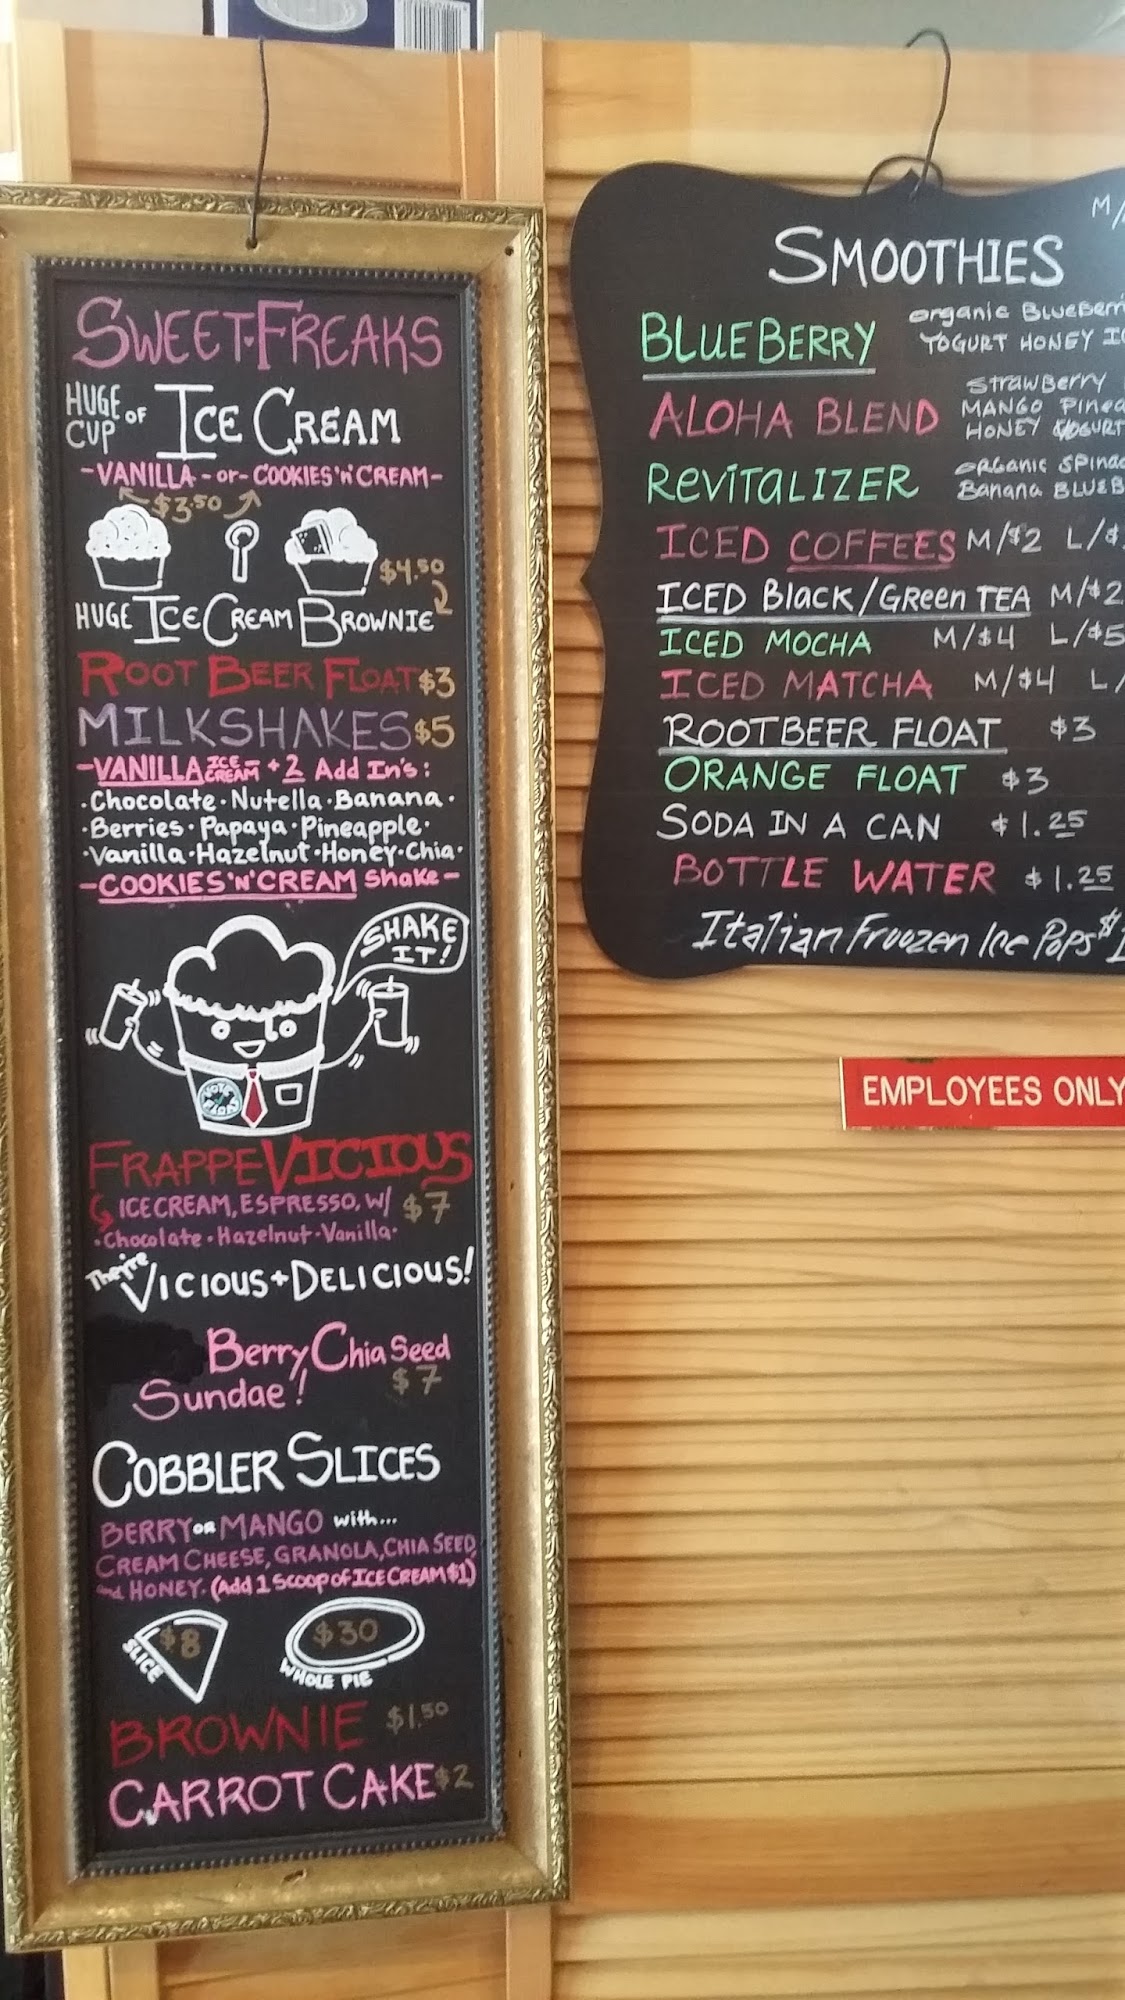 SWEET·FREAKS
HUGE CUP OF ICE CREAM
-VANILLA-or-COOKIES'n'CREAM-
$3.50
$4.50
HUGE ICE CREAM BROWNIE
ROOT BEER FLOAT $3
MILKSHAKES $5
-VANILLA ICE CREAM + 2 Add In's:
·Chocolate·Nutella·Banana·
·Berries·Papaya·Pineapple·
·Vanilla·Hazelnut·Honey·Chia·
-COOKIES'N'CREAM Shake-
SHAKE IT!
FRAPPE VICIOUS
ICE CREAM, ESPRESSO, W/ $7
·Chocolate·Hazelnut·Vanilla·
They're VICIOUS + DELICIOUS!
Berry Chia Seed
Sundae! $7
COBBLER SLICES
BERRY or MANGO with...
CREAM CHEESE, GRANOLA, CHIA SEED
and HONEY. (Add 1 Scoop of ICE CREAM $1)
$8 $30
SLICE WHOLE PIE
BROWNIE $1.50
CARROT CAKE $2
M/
SMOOTHIES
BLUEBERRY organic
YOGURT HONEY
ALOHA BLEND Strawberry
MANGO
HONEY YOGURT
REVITALIZER ORGANIC
Banana
ICED COFFEES M/$2 L/$
ICED Black/Green TEA M/$2
ICED MOCHA M/$4 L/$5
ICED MATCHA M/$4 L/
ROOTBEER FLOAT $3
ORANGE FLOAT $3
SODA IN A CAN $1.25
BOTTLE WATER $1.25
Italian Froozen Ice Pops $1
EMPLOYEES ONLY